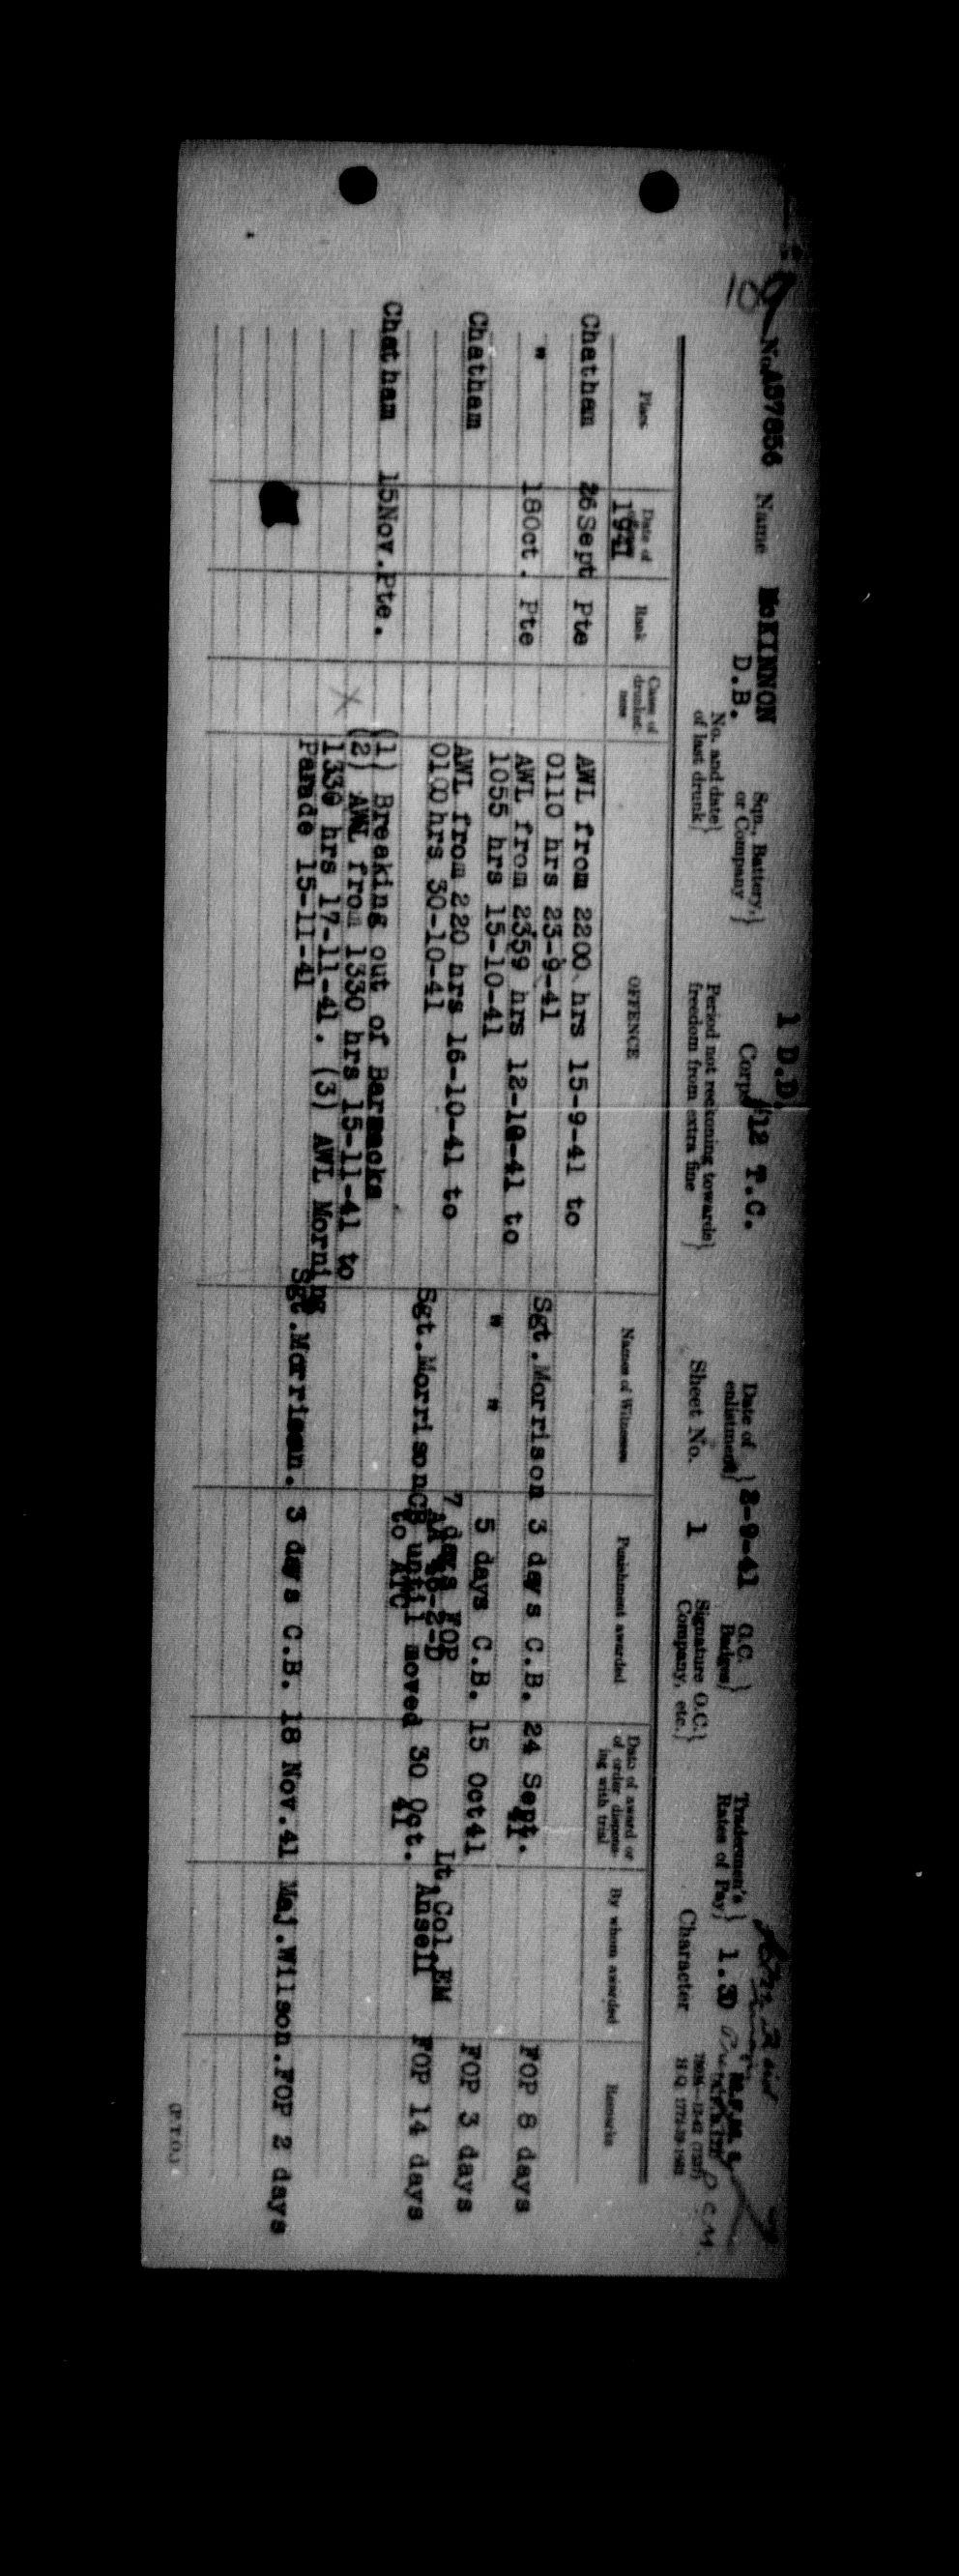 10
No. A57856 Name McKINNON D.B. Sqn., Battery, or Company 1 D.D. Corps #12 T.C. Date of enlistment 2-9-41 G.C. Badges Tradesmen's Rates of Pay 1.30
No. and date of last drunk Period not reckoning towards freedom from extra fine Sheet No. 1 Signature O.C. Company, etc. Character
Place Date of 1941 Rank Cases of drunkenness OFFENCE Names of Witnesses Punishment awarded Date of award or of order dispensing with trial By whom awarded Remarks
Chatham 26Sept Pte AWL from 2200 hrs 15-9-41 to
0110 hrs 23-9-41 Sgt.Morrison 3 days C.B. 24 Sept. 41 FOP 8 days
" 18Oct. Pte AWL from 2359 hrs 12-10-41 to
1055 hrs 15-10-41 " " 5 days C.B. 15 Oct41 FOP 3 days
Chatham AWL from 220 hrs 16-10-41 to
0100hrs 30-10-41 Sgt.Morrison 7 days FOP
CB until moved to ATC 30 Oct. 41 Lt.Col.EM Ansell FOP 14 days
Chatham 15Nov.Pte. (1) Breaking out of Barracks
X (2) AWL from 1330 hrs 15-11-41 to
1330 hrs 17-11-41. (3) AWL Morning
Parade 15-11-41 Sgt.Morrison. 3 days C.B. 18 Nov.41 Maj.Wilson.FOP 2 days
(P.T.O.)